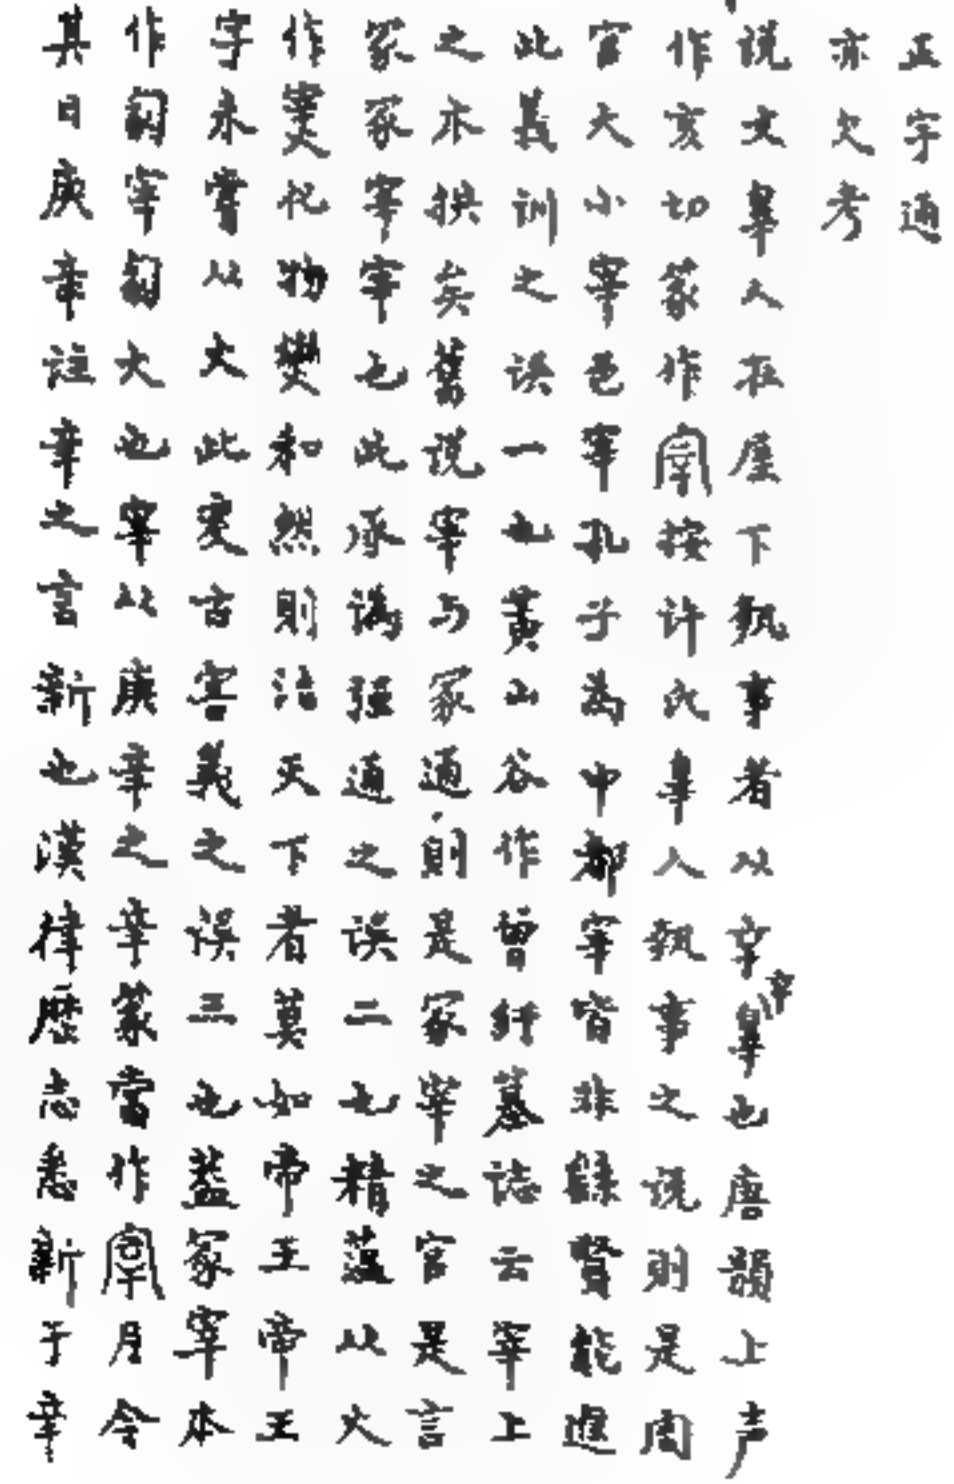 正字通
亦欠考
说文辠人在屋下執事者从宀从辛辛辠也唐韻上声
作亥切篆作宰按许氏辠人執事之说则是周
官大小宰邑宰孔子為中都宰皆非録賢能遂
此義训之误一也黄山谷作曾纡墓誌云宰上
之木拱矣舊说宰与冢通则是冢宰之官是言
冢冢宰宰也此承譌强通之误二也精蕴从火
作㸑化物燮和然則治天下者莫如帝王帝王
字未嘗从大此变古害義之误三也蓋冢宰本
作匌宰匌大也宰从庚辛之辛篆當作宰月令
其日庚辛註辛之言新也漢律歷志悉新于辛